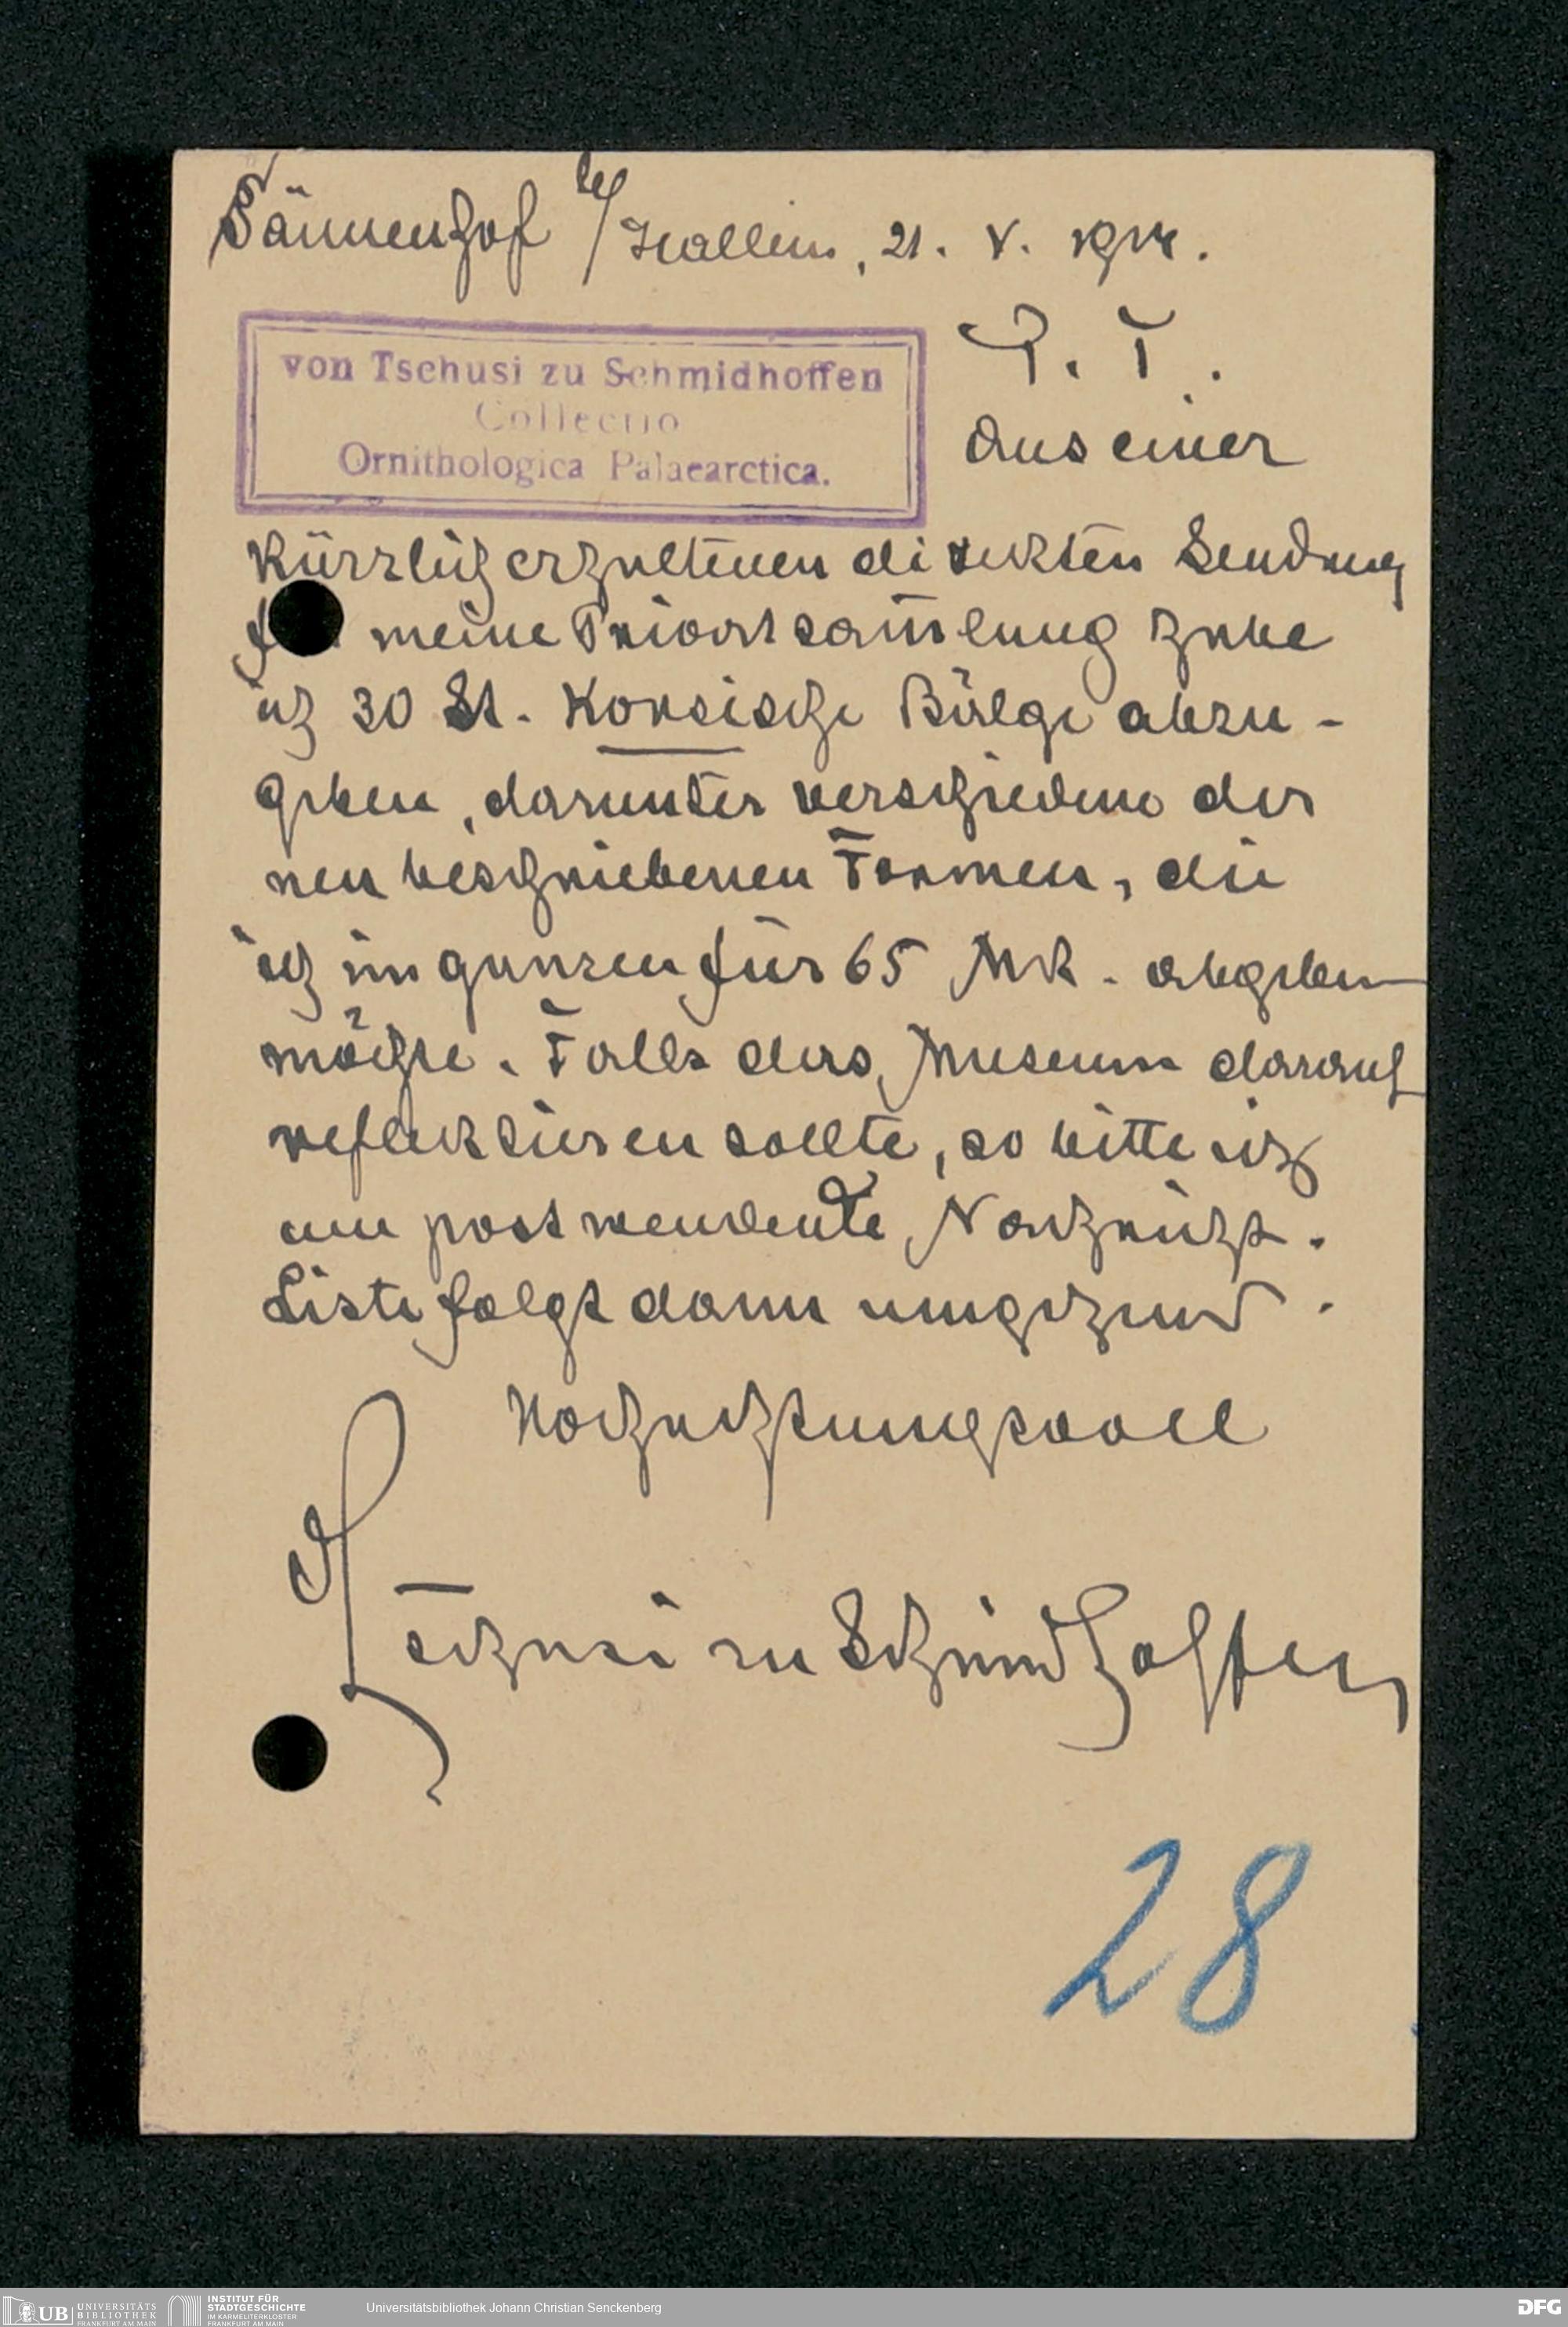 Tännenhof b/Hallein, 21. V. 1914.
von Tschusi zu Schmidhoffen
Collectio
Ornithologica Palaearctica.
P. T.
Aus einer
kürzlich erhaltenen direkten Sendung
für meine Privatsam̄lung habe
ich 30 St. Korsische Bälge abzu-
geben, darunter verschiedene der
neu beschriebenen Formen, die
ich im ganzen für 65 Mk. abgeben
möchte. Falls das Museum darauf
reflektieren sollte, so bitte ich
um postwendende Nachricht.
Liste folgt dann umgehend.
Hochachtungsvoll
Tschusi zu Schmidhoffen
28
UB UNIVERSITÄTS
BIBLIOTHEK
FRANKFURT AM MAIN
INSTITUT FÜR
STADTGESCHICHTE
IM KARMELITERKLOSTER
FRANKFURT AM MAIN
Universitätsbibliothek Johann Christian Senckenberg
DFG